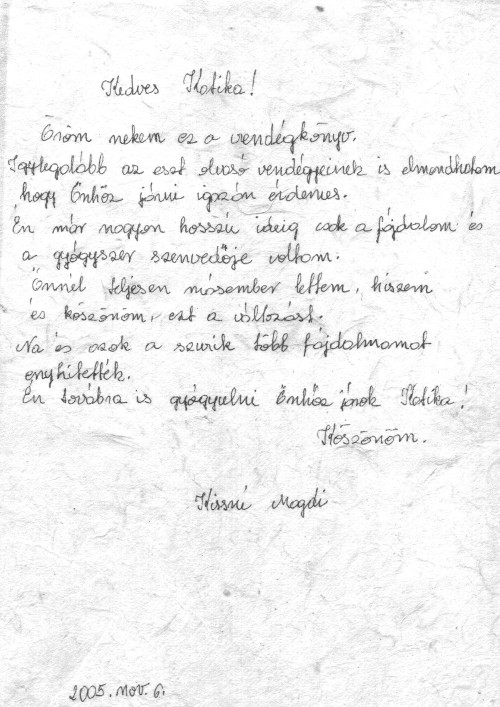 Kedves Katika!
Öröm nekem ez a vendégkönyv.
Így legalább az ezt olvasó vendégeinek is elmondhatom
hogy Önhöz járni igazán érdemes.
Én már nagyon hosszú ideig csak a fájdalom és
a gyógyszer szenvedője voltam.
Önnél teljesen másember lettem, hiszem
és köszönöm, ezt a változást.
Na és azok a szurik több fájdalmamat
enyhitették.
Én továbra is gyógyulni Önhöz járok Katika!
Köszönöm.
Kissné Magdi
2005. nov. 6.